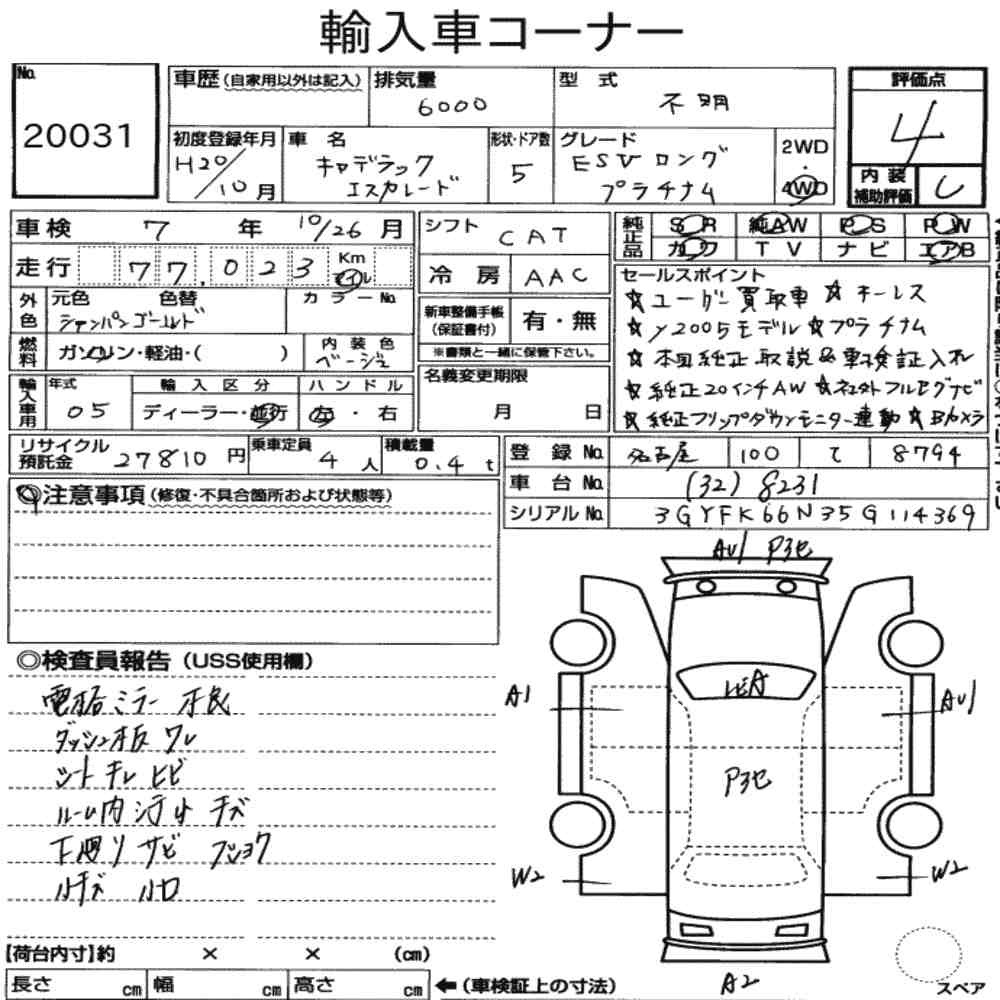 輸入車コーナー
No. 20031
車歴 (自家用以外は記入)
排気量 6000
型式 不明
評価点 4
初度登録年月 H20/10月
車名 キャデラック エスカレード
形状・ドア数 5
グレード ESV ロング プラチナム
2WD・4WD
内装補助評価 C
車検 7年 10/26月
走行 77,023 Km マイル
外色 元色 色替 シャンパンゴールド
カラーNo.
燃料 ガソリン・軽油・( )
内装色 ベージュ
輸入車用 年式 05
輸入区分 ディーラー・並行
ハンドル 左・右
シフト CAT
冷房 AAC
新車整備手帳(保証書付) 有・無
※書類と一緒に保管下さい。
名義変更期限 月 日
純正品 SR 純AW PS PW
カワ TV ナビ エアB
セールスポイント
☆ユーザー買取車 ☆キーレス
☆'2005モデル☆プラチナム
☆本国純正取説&車検証入れ
☆純正20インチAW ☆社外フルセグナビ
☆純正フリップダウンモニター連動 ☆Bカメラ
リサイクル預託金 27810円
乗車定員 4人
積載量 0.4t
登録No. 名古屋 100 て 8794
車台No. (32) 8231
シリアルNo. 3GYFK66N35G114369
◎注意事項 (修復・不具合箇所および状態等)
◎検査員報告 (USS使用欄)
電格ミラー不良
ダッシュ板ワレ
シートキレ ヒビ
ルーム内汚れ キズ
下廻り サビ フショク
小キズ 小凹
AU1 P3セ
A1
AU1
P3セ
W2
W2
A2
【荷台内寸】約 × × (cm)
長さ cm 幅 cm 高さ cm ←(車検証上の寸法)
スペア